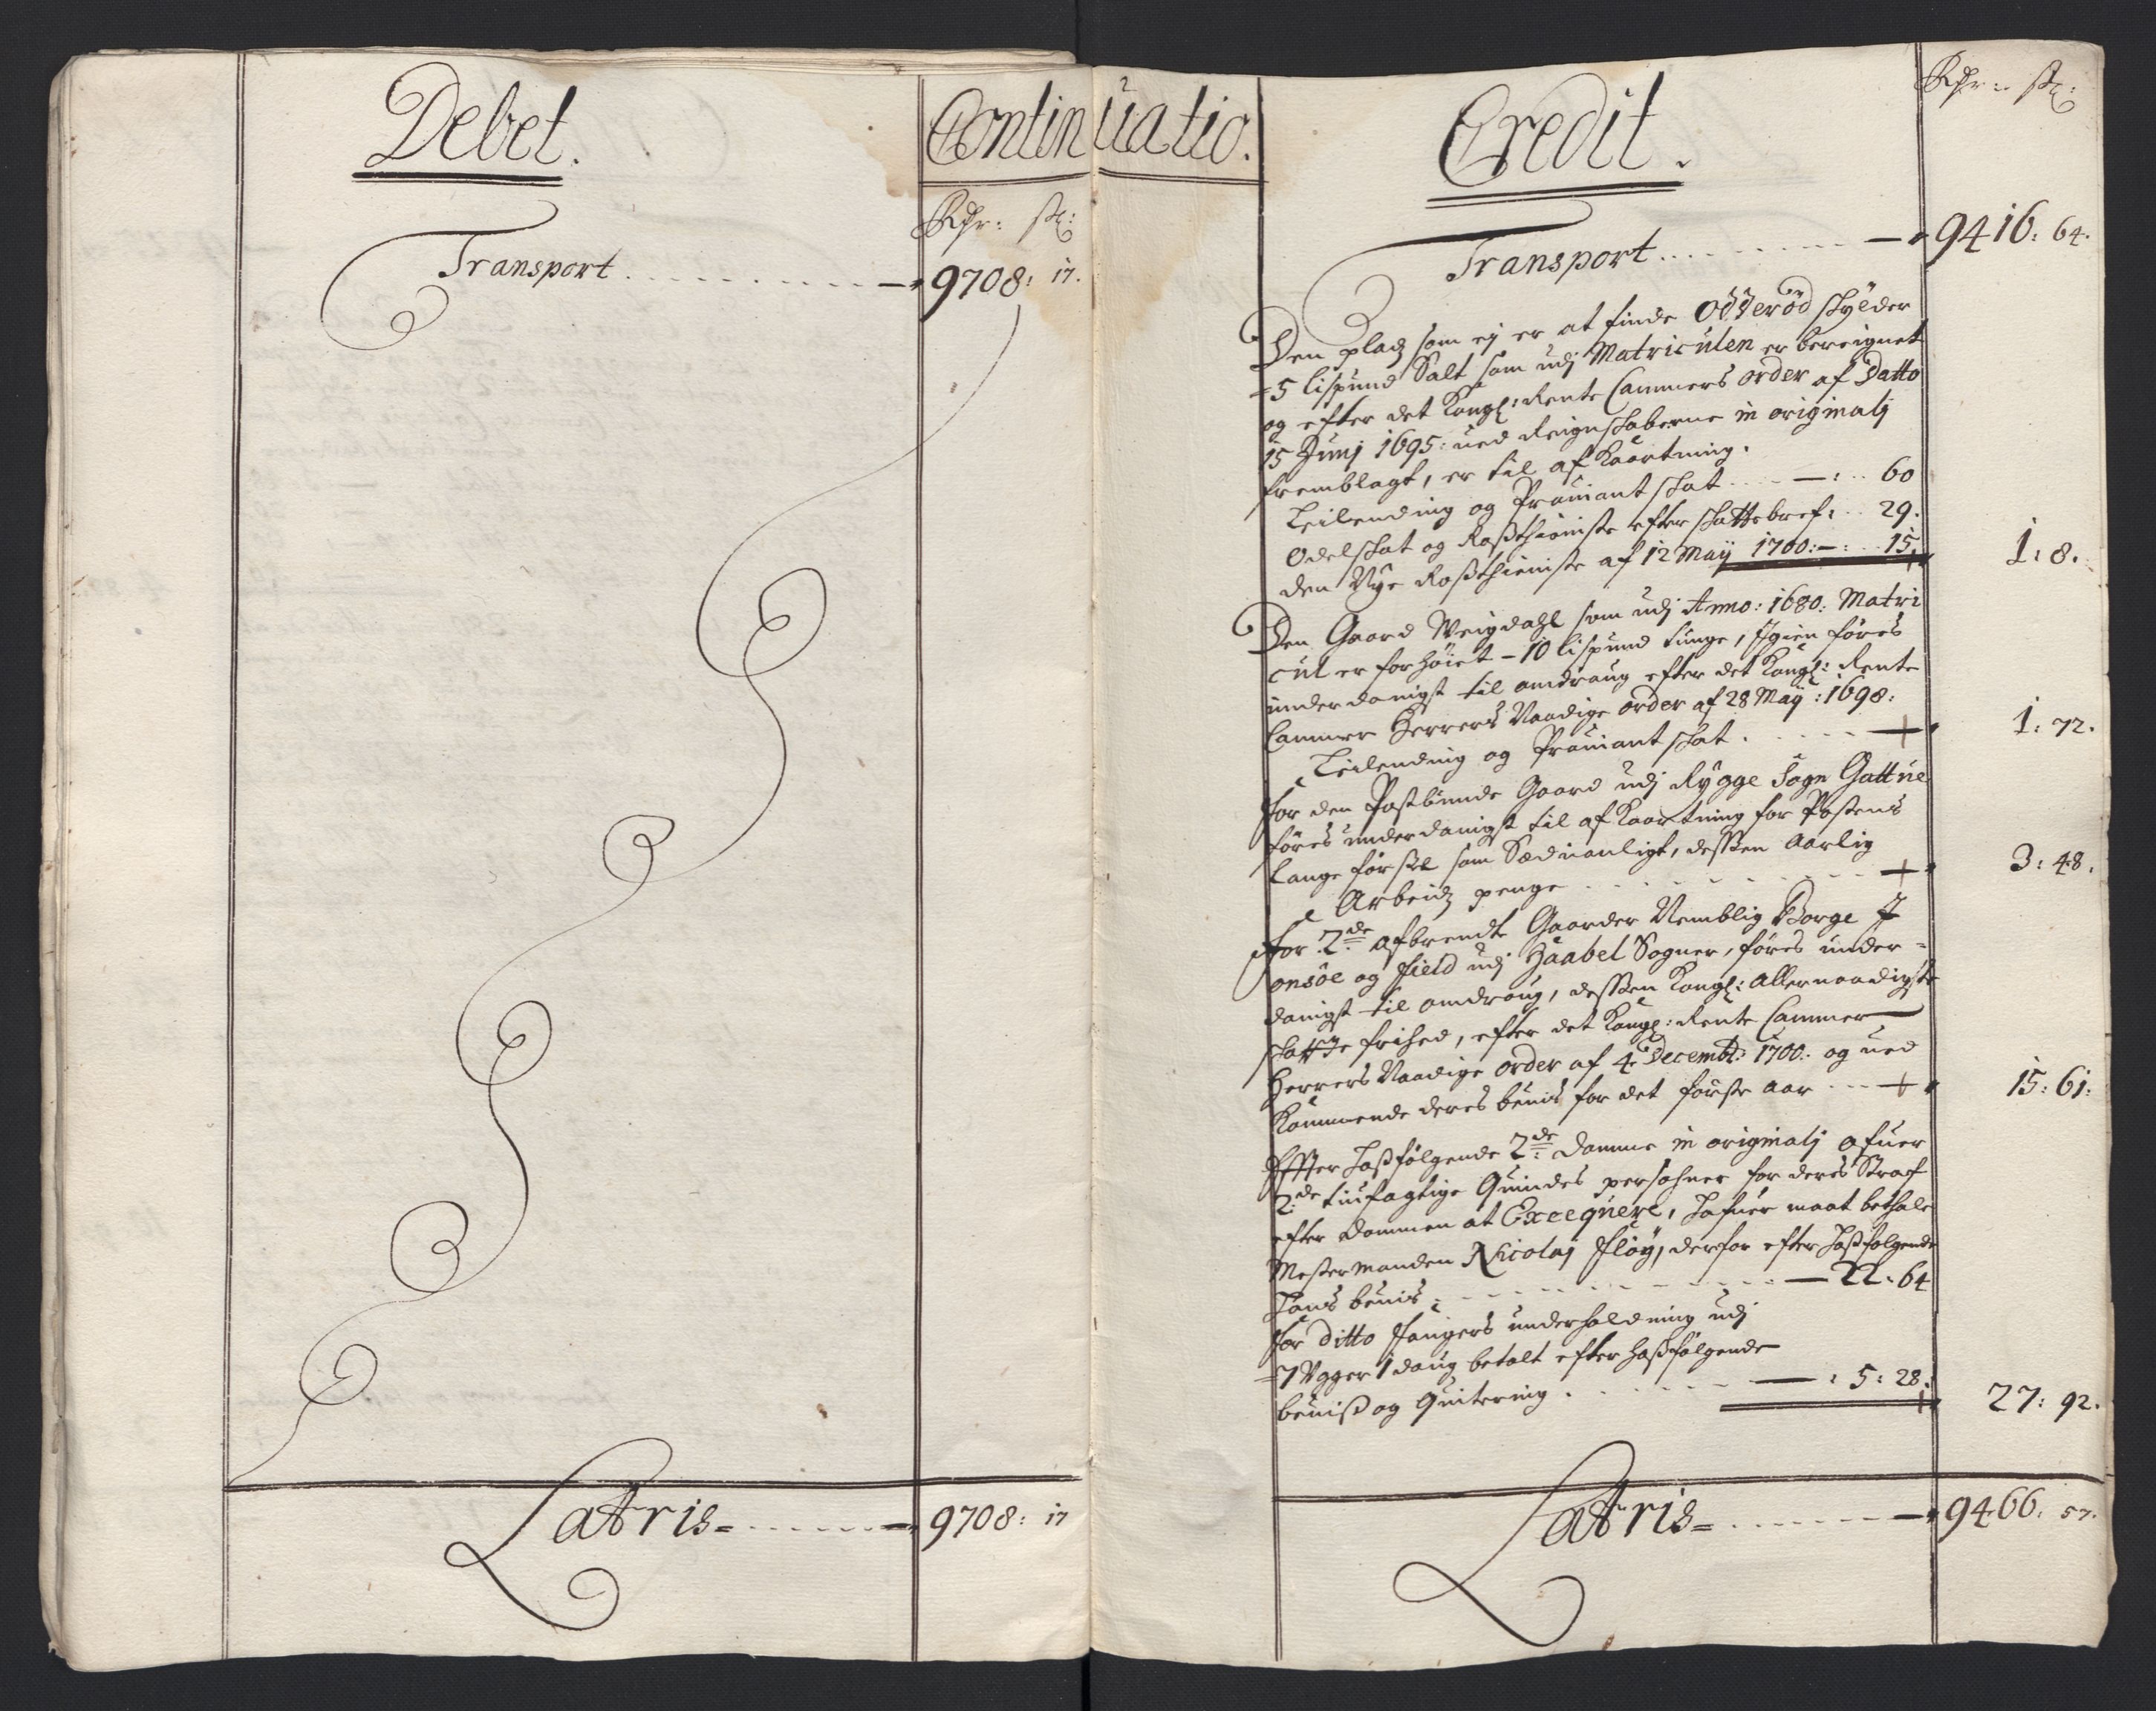 Debet.
Continuatio.
Rdr: sk:
Transport 9708: 17.
Latris 9708: 17
Credit.
Rdr: sk:
Transport 9416: 64.
Den pladz som ej er at finde Odderöd skylder
5 lispund Salt som udj Matriculen er bereignet
og efter det Kongl: Rente Cammers order af Datto
15 Junj 1695: ved Reignskaberne in originalj
fremblagt, er til afkaartning.
Leilending og Prouiant skat — : 60
Odelskat og Rosthieniste efter skattebref: 29.
den Nye Rosthieniste af 12 Maij 1700: — : 15. 1: 8.
Den Gaard Weigdahl som udj Anno: 1680: Matri
cul er forhöiet - 10 lispund tunge, Igien föres
underdanigst til omdraug efter det Kongl: Rente
Cammer Herrers Naadige order af 28 Maij: 1698:
Leilending og Prouiant skat 1: 72.
For den Postbunde Gaard udj Rygge Sogn Gattue
föres underdanigst til afkaartning for Postens
lange förssel som Sæduanligt, dessen Aarlig
Arbeidz penge 3: 48.
For 2de afbrendte Gaarder Nemblig Borge J
onsöe og Field udj Haabel Sogner, föres under-
danigst til omdraug, dessen Kongl: Allernaadigste
skatte frihed, efter det Kongl: Rente Cammer
Herrers Naadige order af 4 Decembr: 1700: og ved
Kommende deres beuis for det förste Aar 15: 61:
Effter hosfölgende 2de Domme in originalj ofuer
2de tiufagtige Quindes persohner for deres Straf
efter Dommen at Exeqvere, hafuer maat bethale
Mestermanden Nicolaj Flöy, derfor efter hosfölgende
hans beuis 22: 64
For ditto Fangers underholdning udj
7 Ugger 1 daug betalt efter hosfölgende
beuis og Quitering : 5: 28. 27: 92.
Latris 9466: 57.